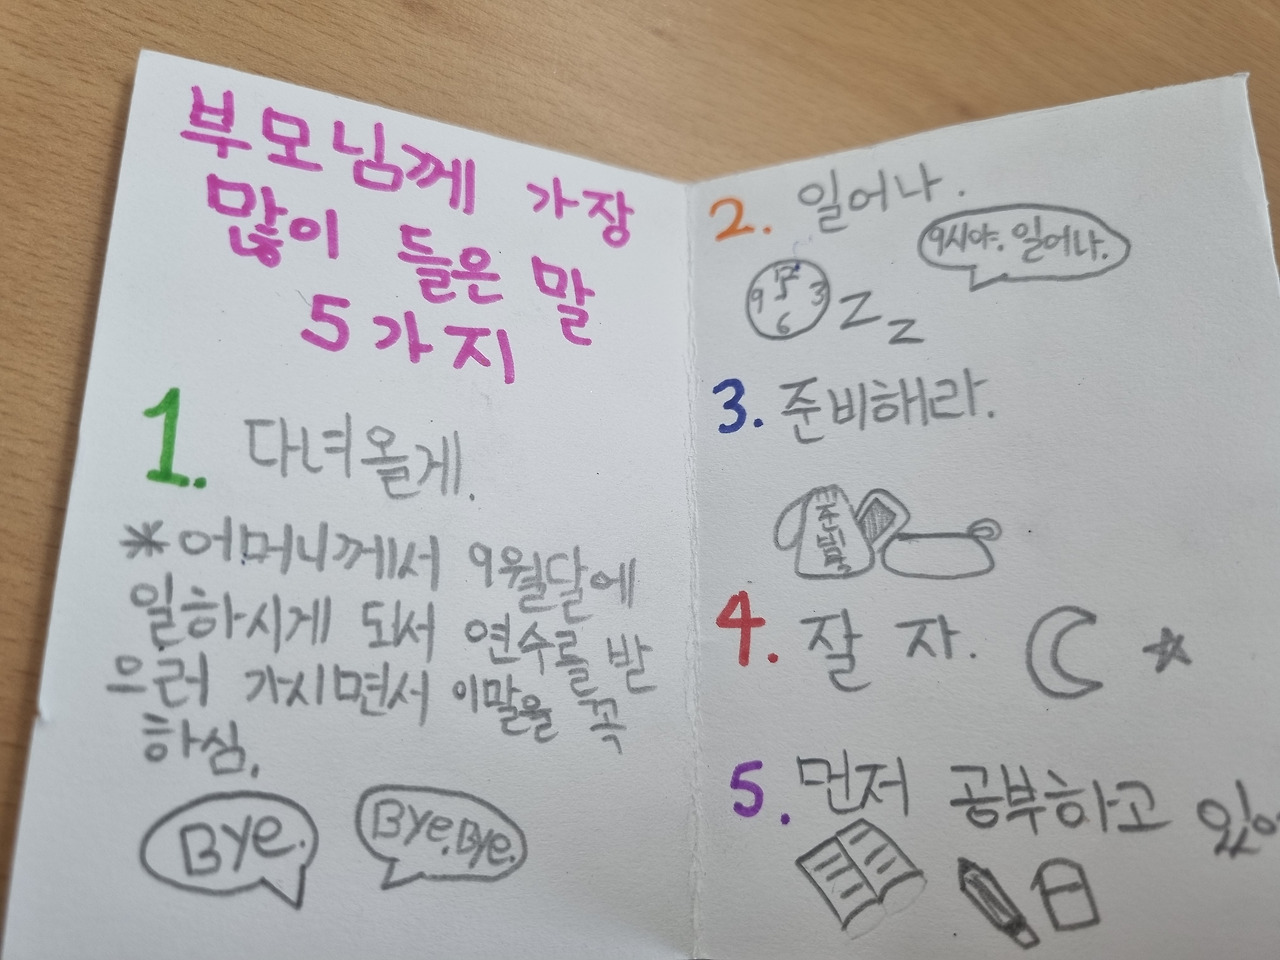 부모님께 가장
많이 들은 말
5가지
1. 다녀올게.
*어머니께서 9월달에
일하시게 되서 연수를 받
으러 가시면서 이말을 꼭
하심.
Bye.
Bye.Bye.
2. 일어나.
9시야. 일어나.
12
9 3
6
z z
3. 준비해라.
준비물
4. 잘 자.
5. 먼저 공부하고 있어